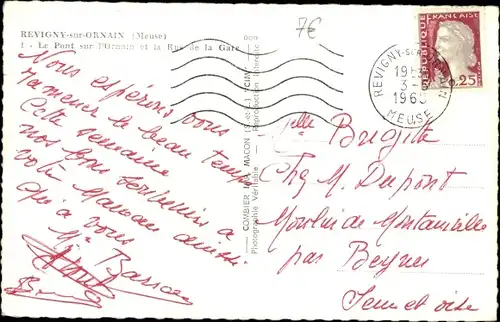 REVIGNY-sur-ORNAIN (Meuse)
1 - Le Pont sur l'Ornain et la Rue de la Gare
7€
Nous espérons vous
ramener le beau temps
Cette semaine
nos bons souvenirs a
votre Maman ainsi
qu'a vous
COMBIER IMP. MACON (S.-et-L.) "CIM"
Photographie Véritable - Reproduction Interdite
REVIGNY-SUR-ORNAIN
MEUSE
RÉPUBLIQUE FRANÇAISE
0,25
Melle Brigitte
Chez M. Dupont
Moulin de
par Beynes
Seine et oise